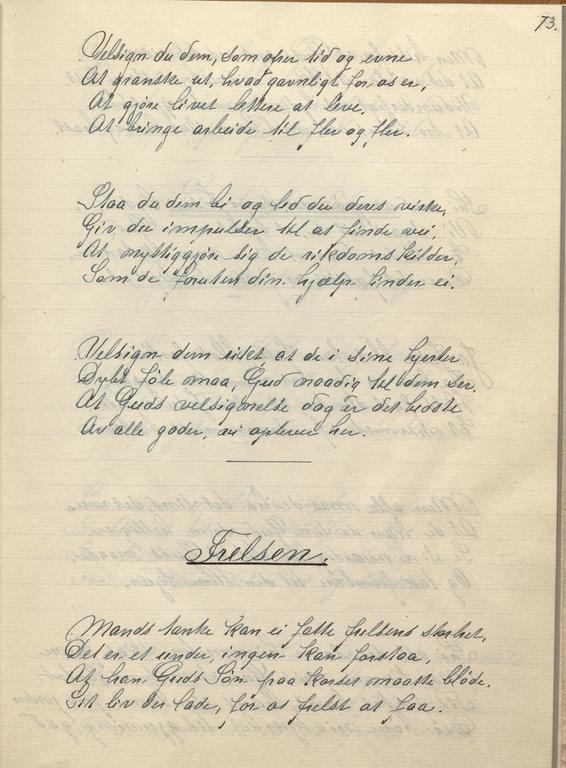 73.
Velsign du dem, som ofrer tid og evne
At granske ut, hvad gavnligt for os er,
At gjøre livet lettere at leve,
At bringe arbeide til fler og fler.
Staa du dem bi og led du deres virke,
Giv du impulser til at finde vei,
At nyttiggjøre sig de rikdomskilder,
Som de foruten din hjælp finder ei.
Velsign dem rikt at de i sine hjerter
Dybt føle maa, Gud naadig til dem ser.
At Guds velsignelse dog er det bedste
Av alle goder, vi oplever her.
Frelsen.
Mands tanke kan ei fatte frelsens storhet,
Det er et under, ingen kan forstaa,
At han Guds Søn paa korset maatte bløde.
Sit liv der lade, for os frelst at faa.